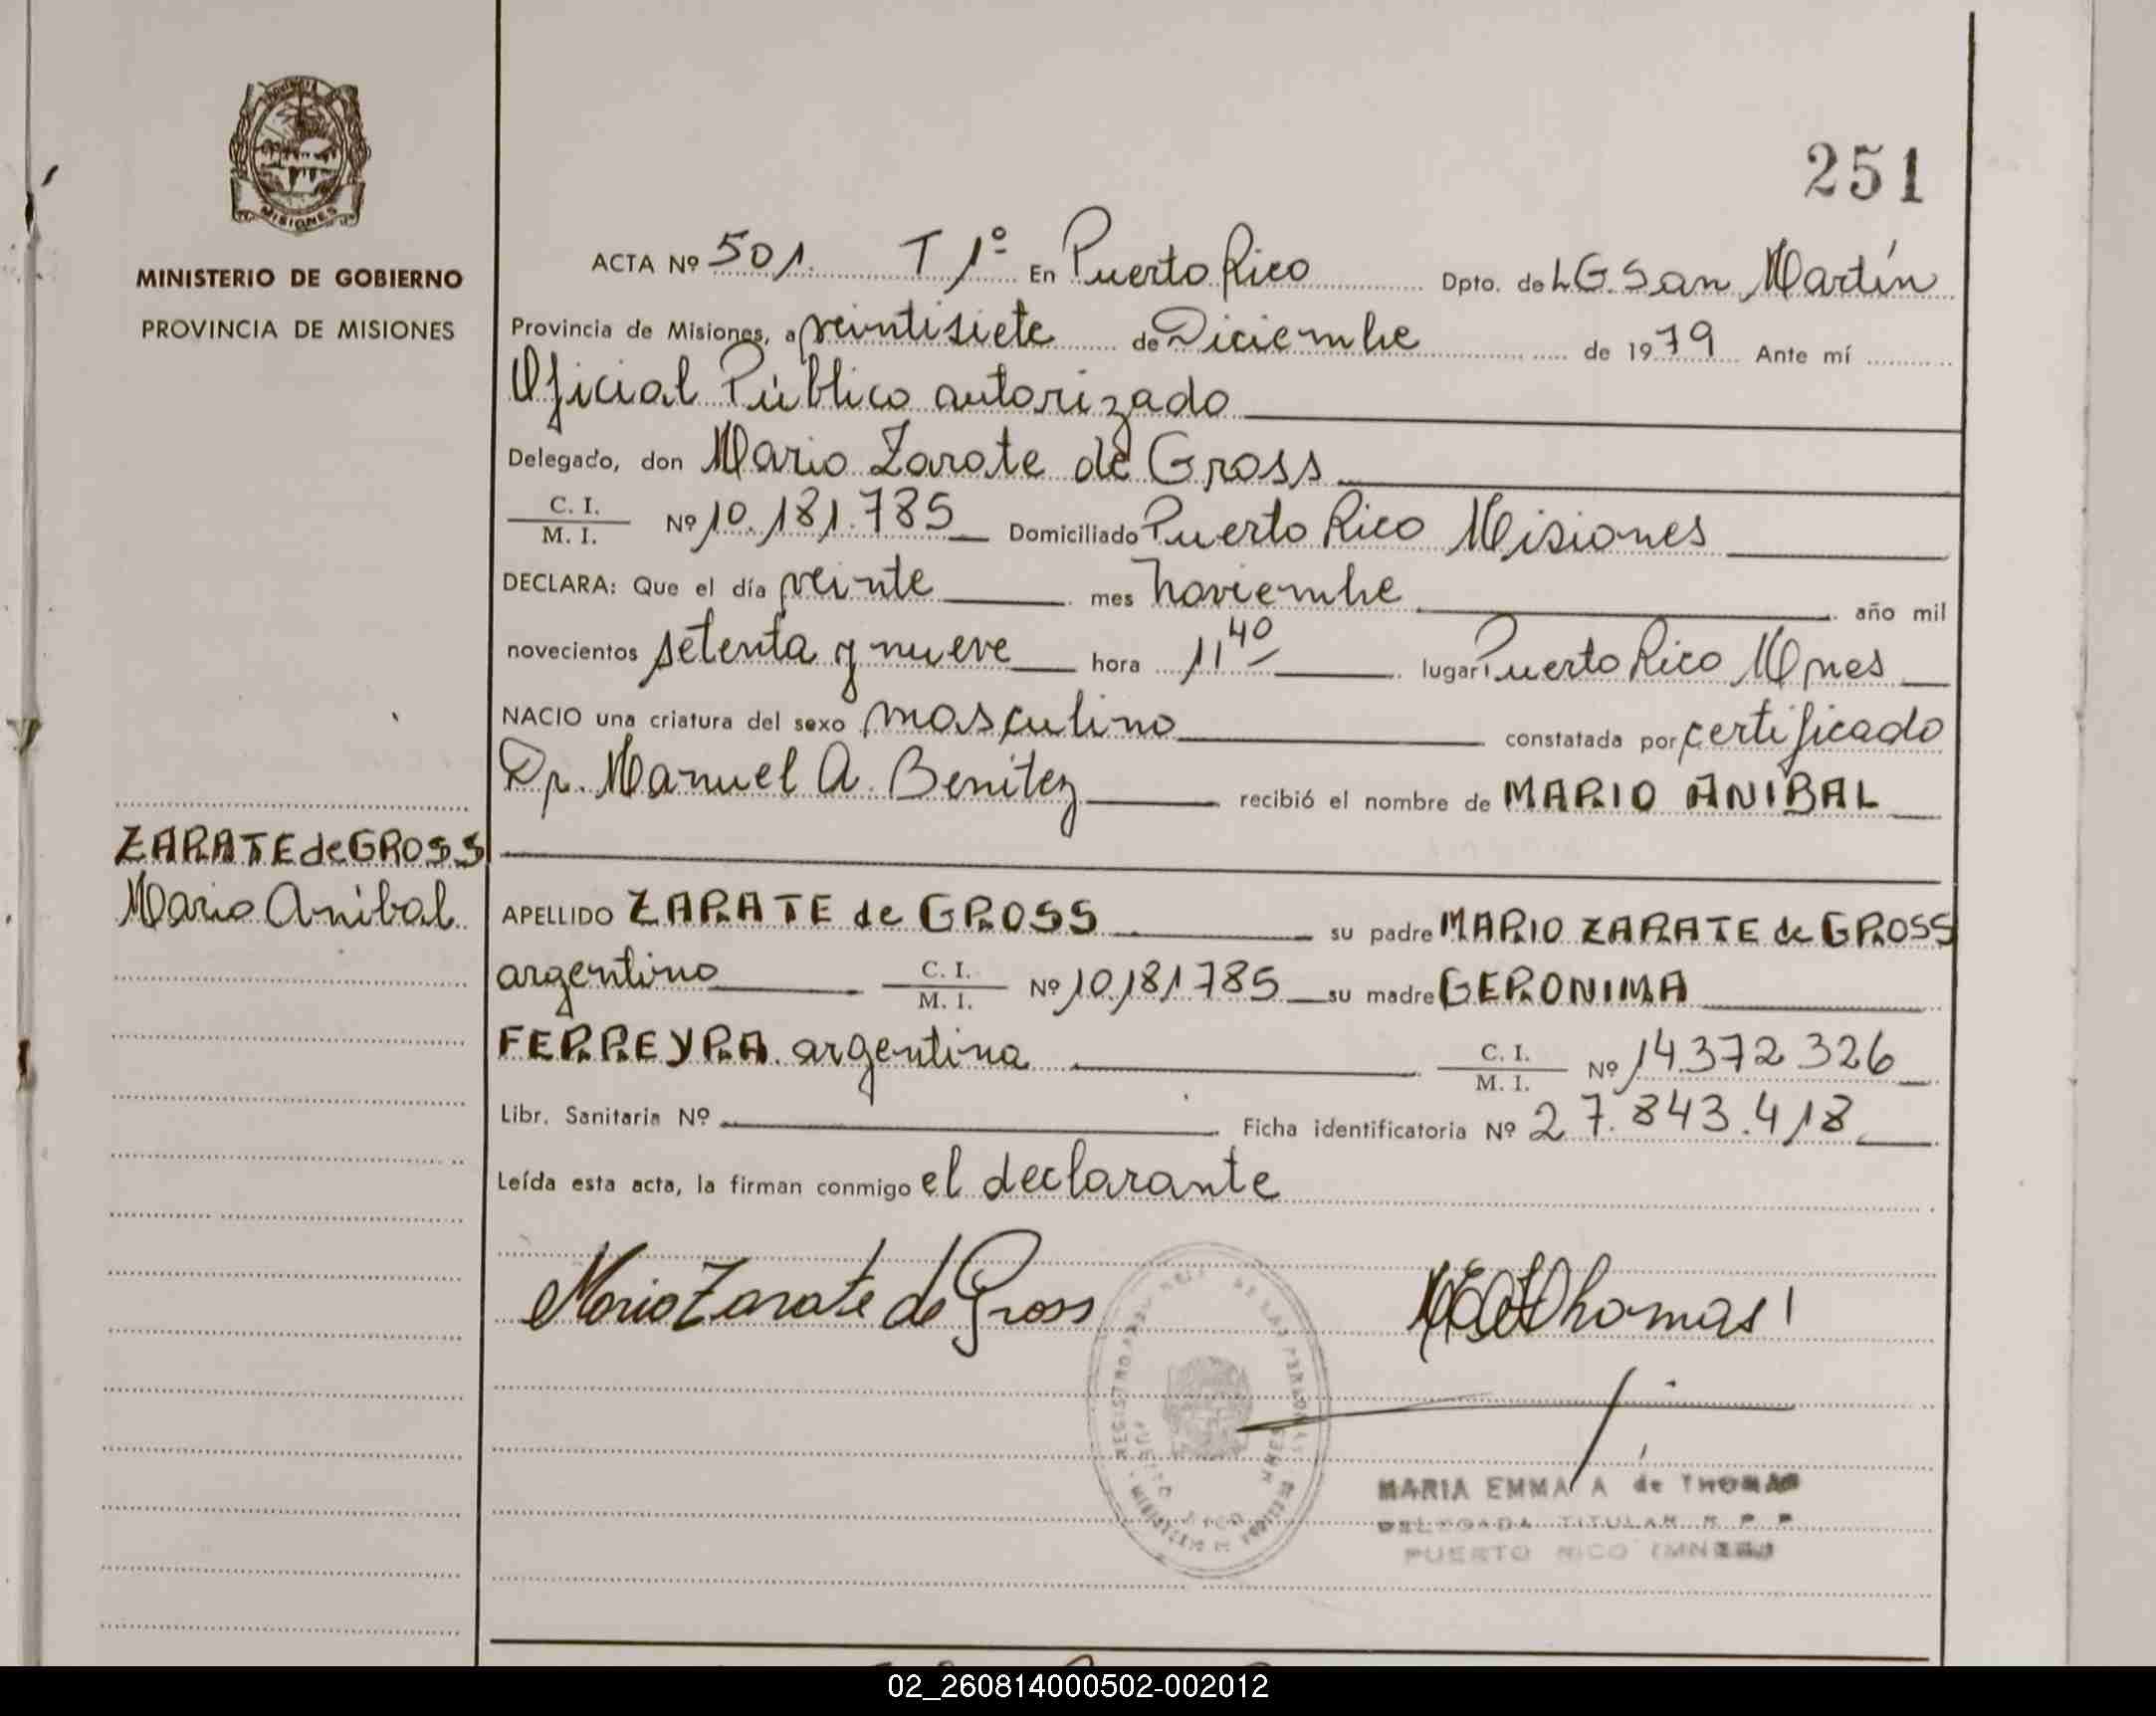 251
MISIONES
MINISTERIO DE GOBIERNO
PROVINCIA DE MISIONES
ACTA Nº 501. T 1º En Puerto Rico Dpto. de L.G. San Martín
Provincia de Misiones, a veintisiete de Diciembre de 1979 Ante mí
Oficial Público autorizado
Delegado, don Mario Zarate de Gross
C. I. / M. I. Nº 10.181.785 Domiciliado Puerto Rico Misiones
DECLARA: Que el día veinte mes noviembre año mil
novecientos setenta y nueve hora 11 40 lugar Puerto Rico Mnes
NACIO una criatura del sexo masculino constatada por certificado
Dr. Manuel A. Benitez recibió el nombre de MARIO ANIBAL
ZARATE de GROSS
Mario Anibal
APELLIDO ZARATE de GROSS su padre MARIO ZARATE de GROSS
argentino C. I. / M. I. Nº 10.181.785 su madre GERONIMA
FERREYRA argentina C. I. / M. I. Nº 14.372.326
Libr. Sanitaria Nº Ficha identificatoria Nº 27.843.418
Leída esta acta, la firman conmigo el declarante
Mario Zarate de Gross
Thomas
MARIA EMMA A de THOMAS
DELEGADA TITULAR R P P
PUERTO RICO (MNES)
02_260814000502-002012